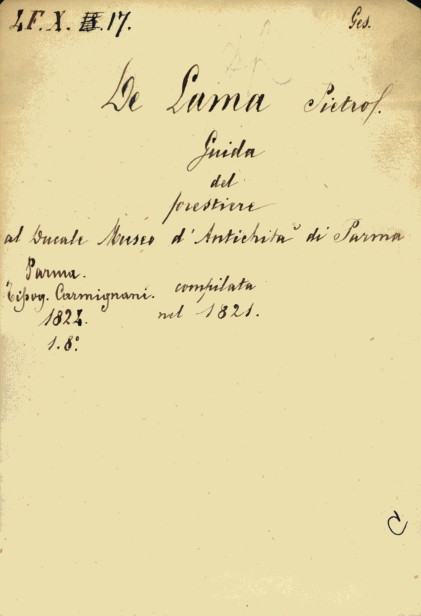 LF. X. II. 17.
Ges.
De Lama Pietro/.
Guida
del
forestiere
al Ducale Museo d'Antichità di Parma
compilata
nel 1821.
Parma.
Tipog. Carmignani.
1824.
1.8°.
C